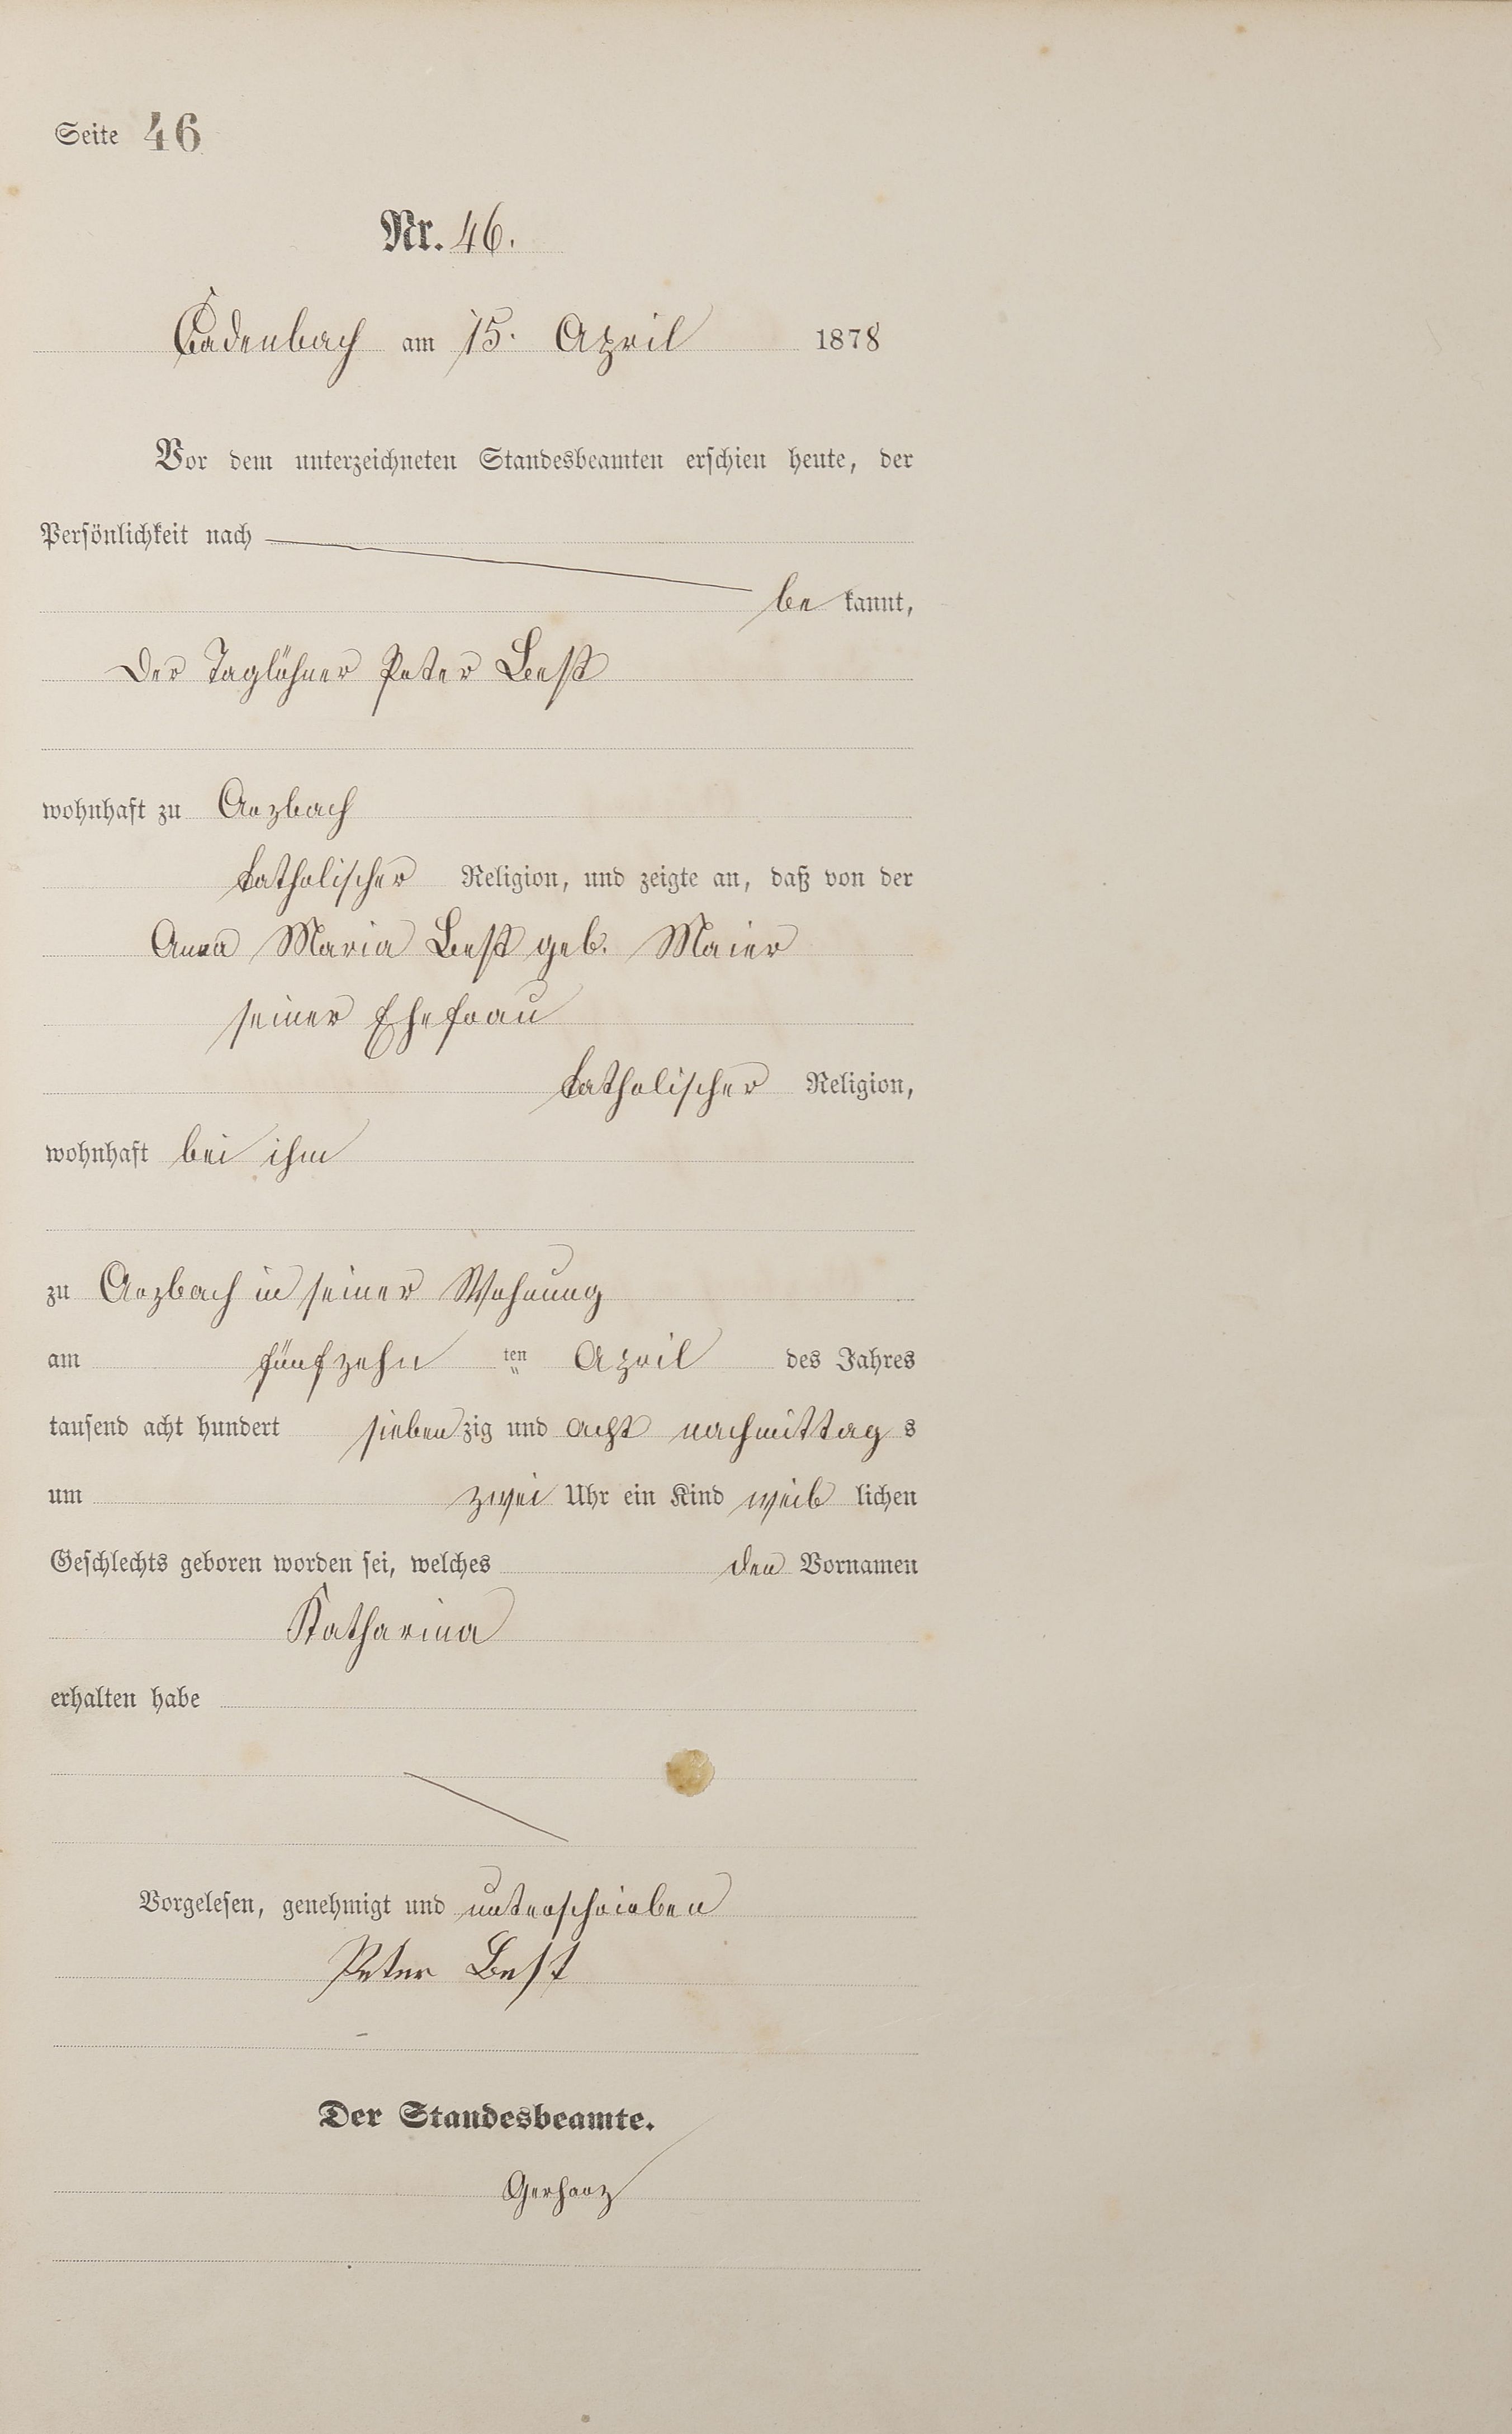 Seite 46
Nr. 46.
Cadenbach am 15. April 1878
Vor dem unterzeichneten Standesbeamten erschien heute, der
Persönlichkeit nach
be kannt,
der Taglöhner Peter Best
wohnhaft zu Arzbach
katholischer Religion, und zeigte an, daß von der
Anna Maria Best geb. Maier
seiner Ehefrau
katholischer Religion,
wohnhaft bei ihm
zu Arzbach in seiner Wohnung
am fünfzehn ten April des Jahres
tausend acht hundert siebenzig und acht nachmittag s
um zwei Uhr ein Kind weib lichen
Geschlechts geboren worden sei, welches den Vornamen
Katharina
erhalten habe
Vorgelesen, genehmigt und unterschrieben
Peter Best
Der Standesbeamte.
Gerharz